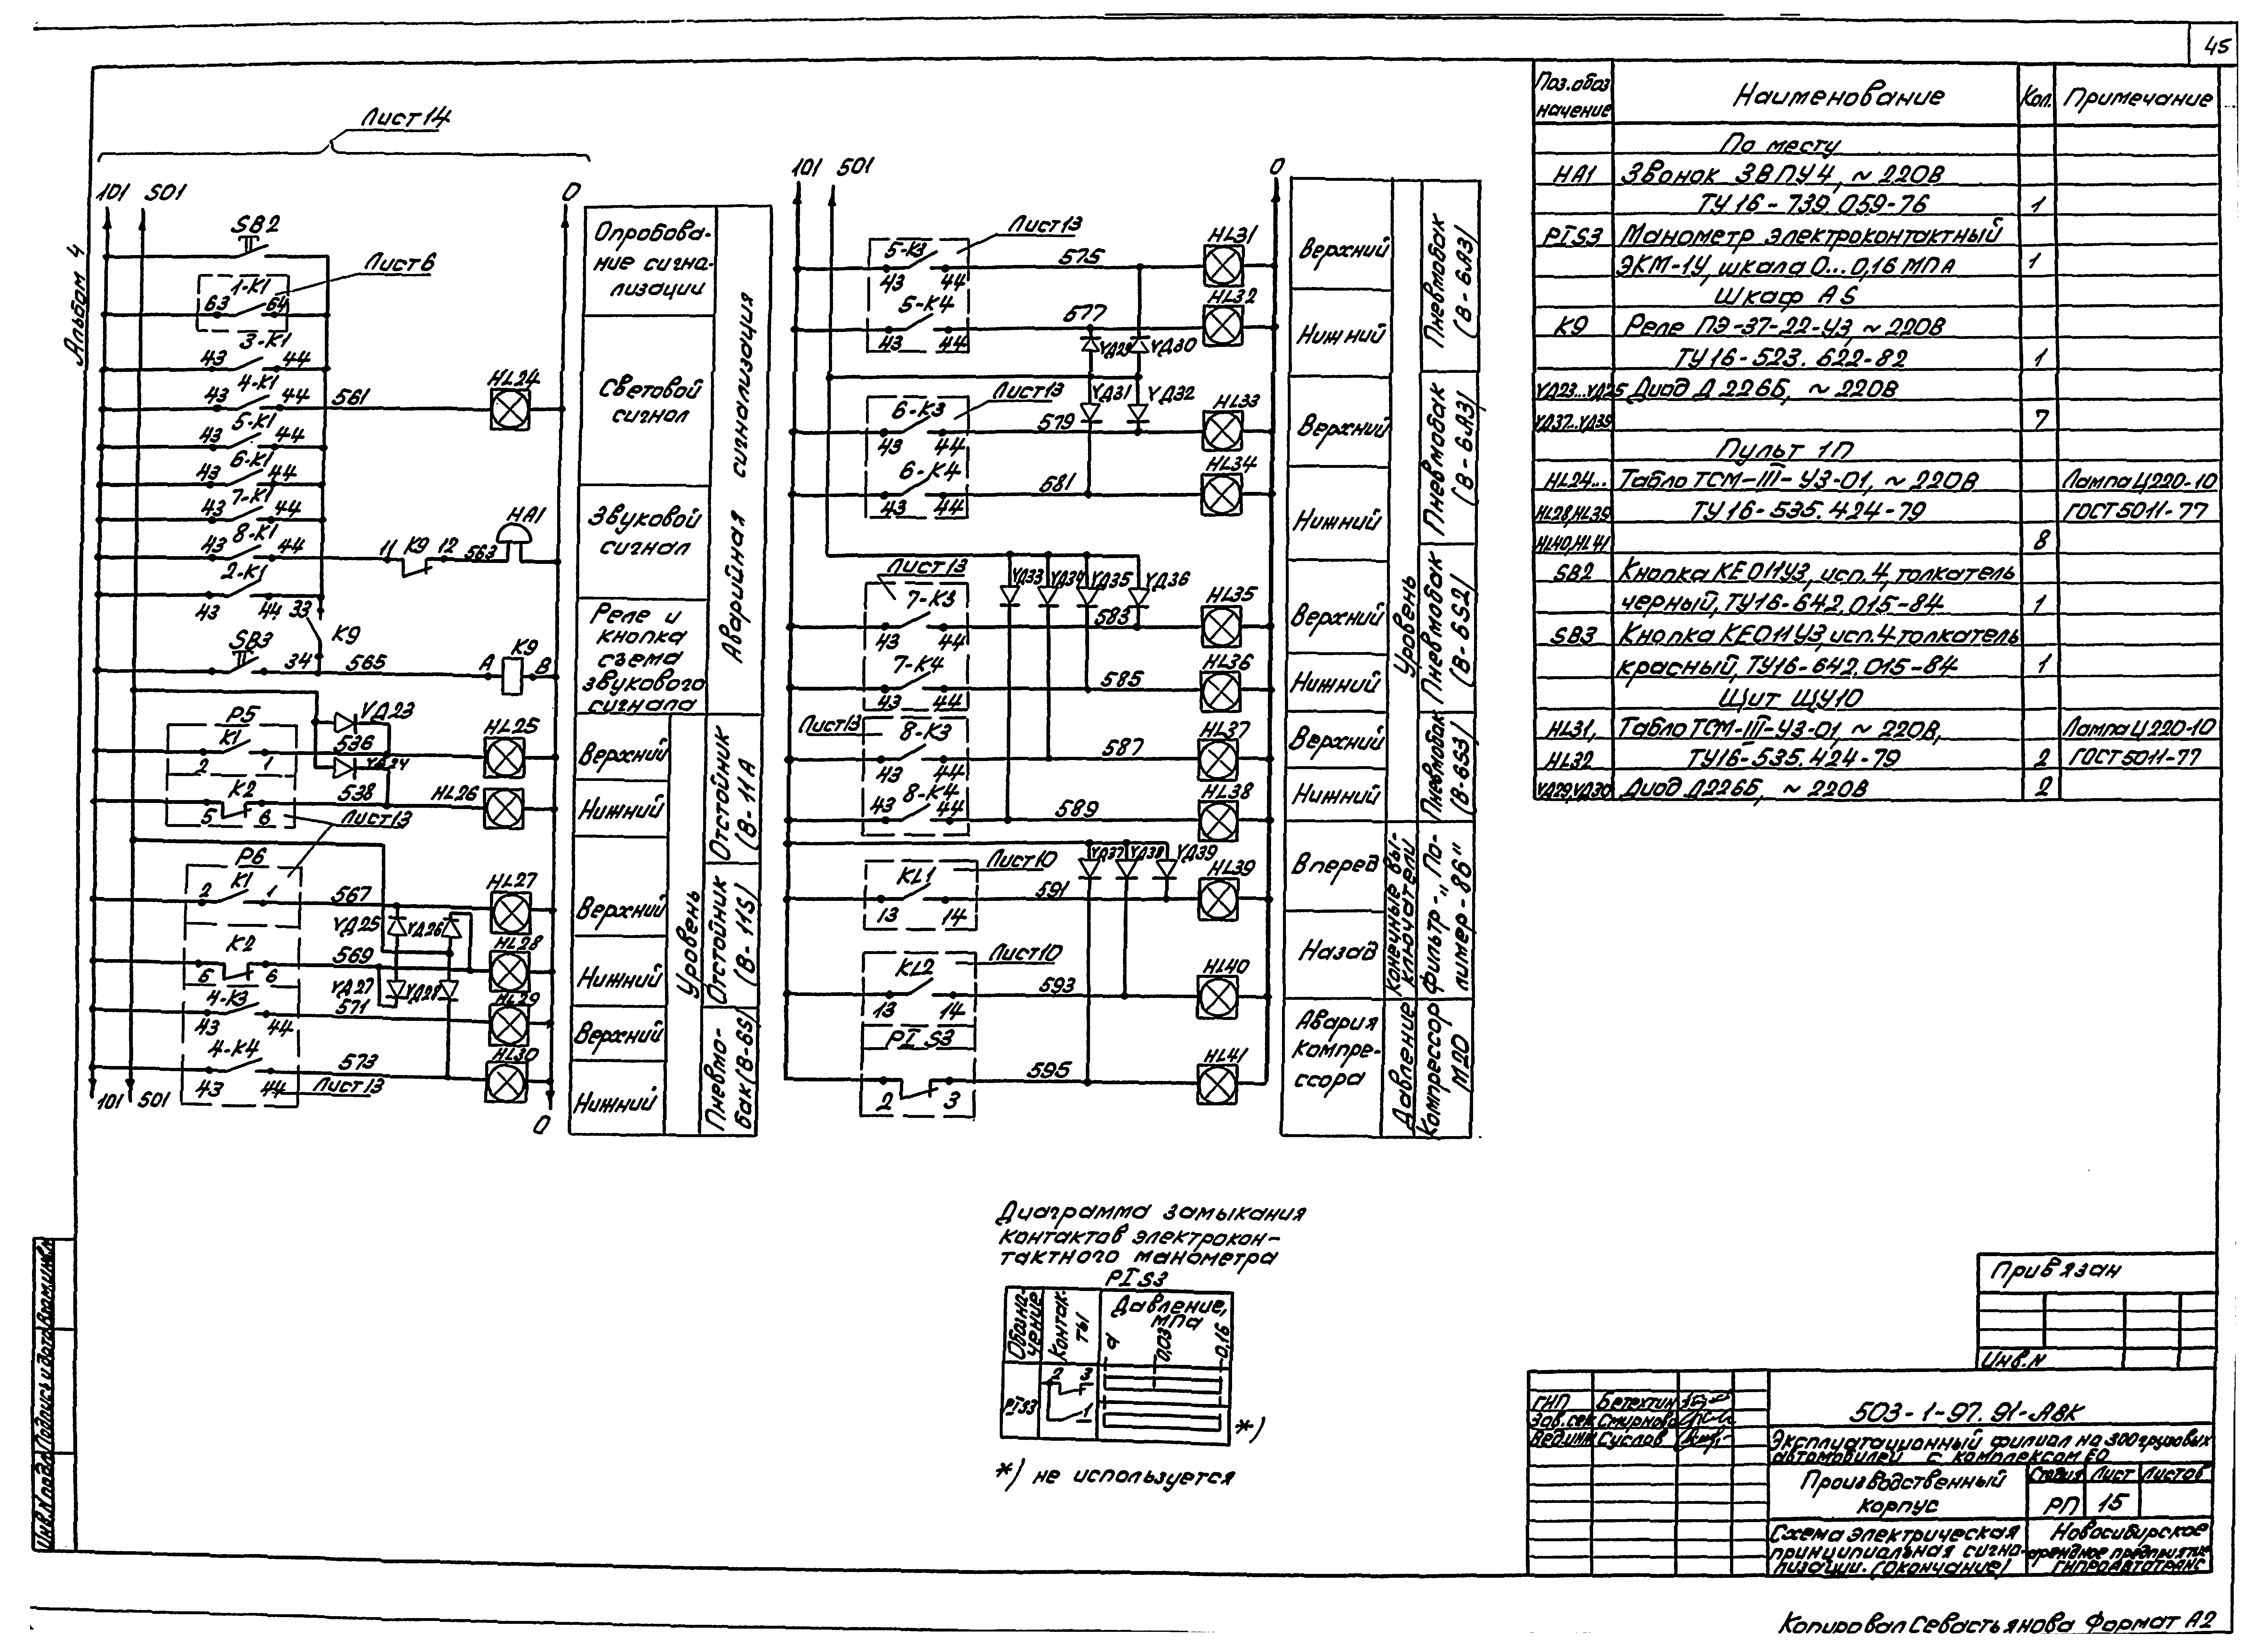 45
Альбом 4
Лист 14
101
501
0
SB2
Лист 6
1-К1
63
64
3-К1
43
44
4-К1
43
44
561
HL24
5-К1
43
44
6-К1
43
44
7-К1
43
44
8-К1
43
44
11
К9
12
563
HA1
2-К1
43
44
33
К9
SB3
34
565
А
К9
В
VД23
Р5
К1
536
HL25
2
1
VД24
К2
538
HL26
5
6
Лист 13
Р6
К1
2
1
567
HL27
VД25
VД26
К2
569
HL28
5
6
VД27
VД28
4-К3
571
HL29
43
44
4-К4
573
HL30
43
44
Лист 13
101
501
0
Опробова-
ние сигна-
лизации
Световой
сигнал
Звуковой
сигнал
Реле и
кнопка
съема
звукового
сигнала
Аварийная сигнализация
Верхний
Нижний
Отстойник
(В-11А)
Верхний
Нижний
Отстойник
(В-11S)
Верхний
Нижний
Пневмо-
бак (В-6S)
Уровень
101
501
0
Лист 13
5-К3
43
44
575
HL31
5-К4
43
44
577
HL32
VД29
VД30
VД31
VД32
Лист 13
6-К3
43
44
579
HL33
6-К4
43
44
581
HL34
VД33
VД34
VД35
VД36
Лист 13
7-К3
43
44
583
HL35
7-К4
43
44
585
HL36
Лист 13
8-К3
43
44
587
HL37
8-К4
43
44
589
HL38
VД37
VД38
VД39
Лист 10
KL1
13
14
591
HL39
Лист 10
KL2
13
14
593
HL40
PIS3
2
3
595
HL41
Верхний
Нижний
Пневмобак
(В-6А3)
Верхний
Нижний
Пневмобак
(В-6А3)
Верхний
Нижний
Пневмобак
(В-6S2)
Верхний
Нижний
Пневмобак
(В-6S3)
Уровень
Вперед
Назад
Конечные вы-
ключатели
Фильтр-"По-
лимер-86"
Авария
компре-
ссора
Давление
Компрессор
М20
Поз.обоз
начение
Наименование
Кол.
Примечание
По месту
HA1 Звонок ЗВПУ4, ~ 220В
ТУ16-739.059-76 1
PIS3 Манометр электроконтактный
ЭКМ-1У, шкала 0...0,16 МПА 1
Шкаф АS
К9 Реле ПЭ-37-22-У3, ~ 220В
ТУ16-523.622-82 1
VД23...VД25 Диод Д226Б, ~ 220В
VД37...VД39 7
Пульт 1П
HL24... Табло ТСМ-III-У3-01, ~ 220В Лампа Ц220-10
HL28,HL39 ТУ16-535.424-79 ГОСТ 5011-77
HL40,HL41 8
SB2 Кнопка КЕ011У3, исп.4, толкатель
черный, ТУ16-642.015-84 1
SB3 Кнопка КЕ011У3, исп.4 толкатель
красный, ТУ16-642.015-84 1
Щит ЩУ10
HL31, Табло ТСМ-III-У3-01, ~ 220В, Лампа Ц220-10
HL32 ТУ16-535.424-79 2 ГОСТ 5011-77
VД29,VД30 Диод Д226Б, ~ 220В 2
Диаграмма замыкания
контактов электрокон-
тактного манометра
PIS3
Обозна-
чение
Контак-
ты
Давление,
МПа
0,03
0,16
PIS3
2
3
1
*)
*) не используется
Привязан
Инв.N
ГИП Бетехтин
Зав.сек Смирнова
Вед.инж Суслов
503-1-97.91-АВК
Эксплуатационный филиал на 300 грузовых
автомобилей с комплексом ЕО
Производственный
корпус
Стадия Лист Листов
РП 15
Схема электрическая
принципиальная сигна-
лизации. (Окончание)
Новосибирское
арендное предприятие
ГИПРОАВТОТРАНС
Инв.N подл. Подпись и дата Взам.инв.N
Копировал Севастьянова Формат А2